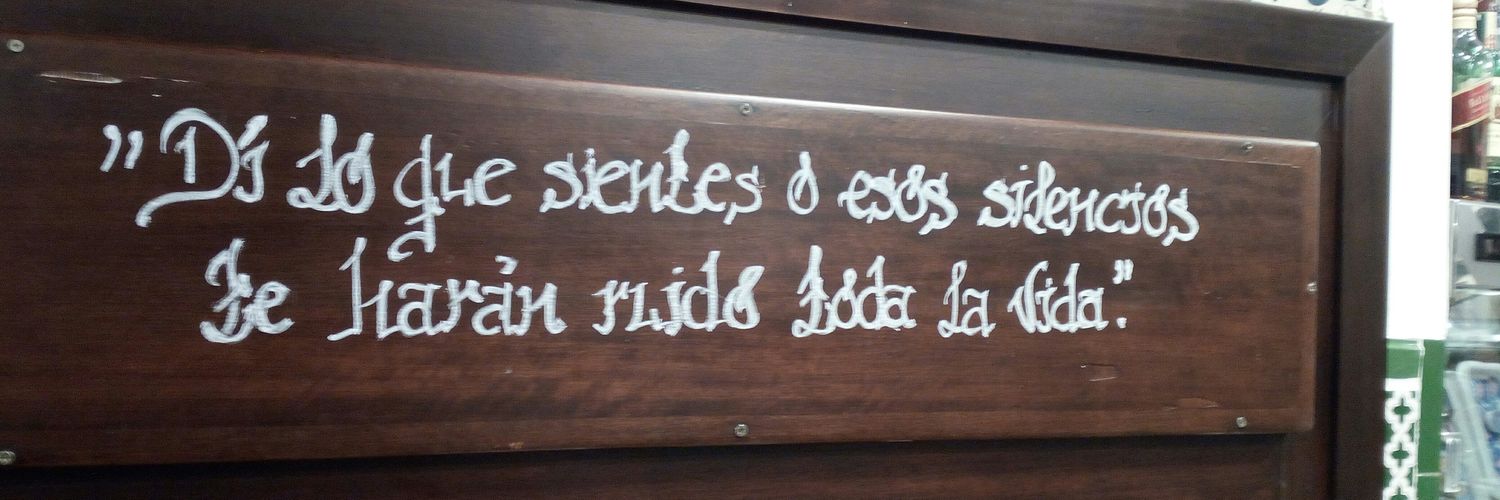 "Dí lo que sientes o esos silencios
te harán ruido toda la vida".